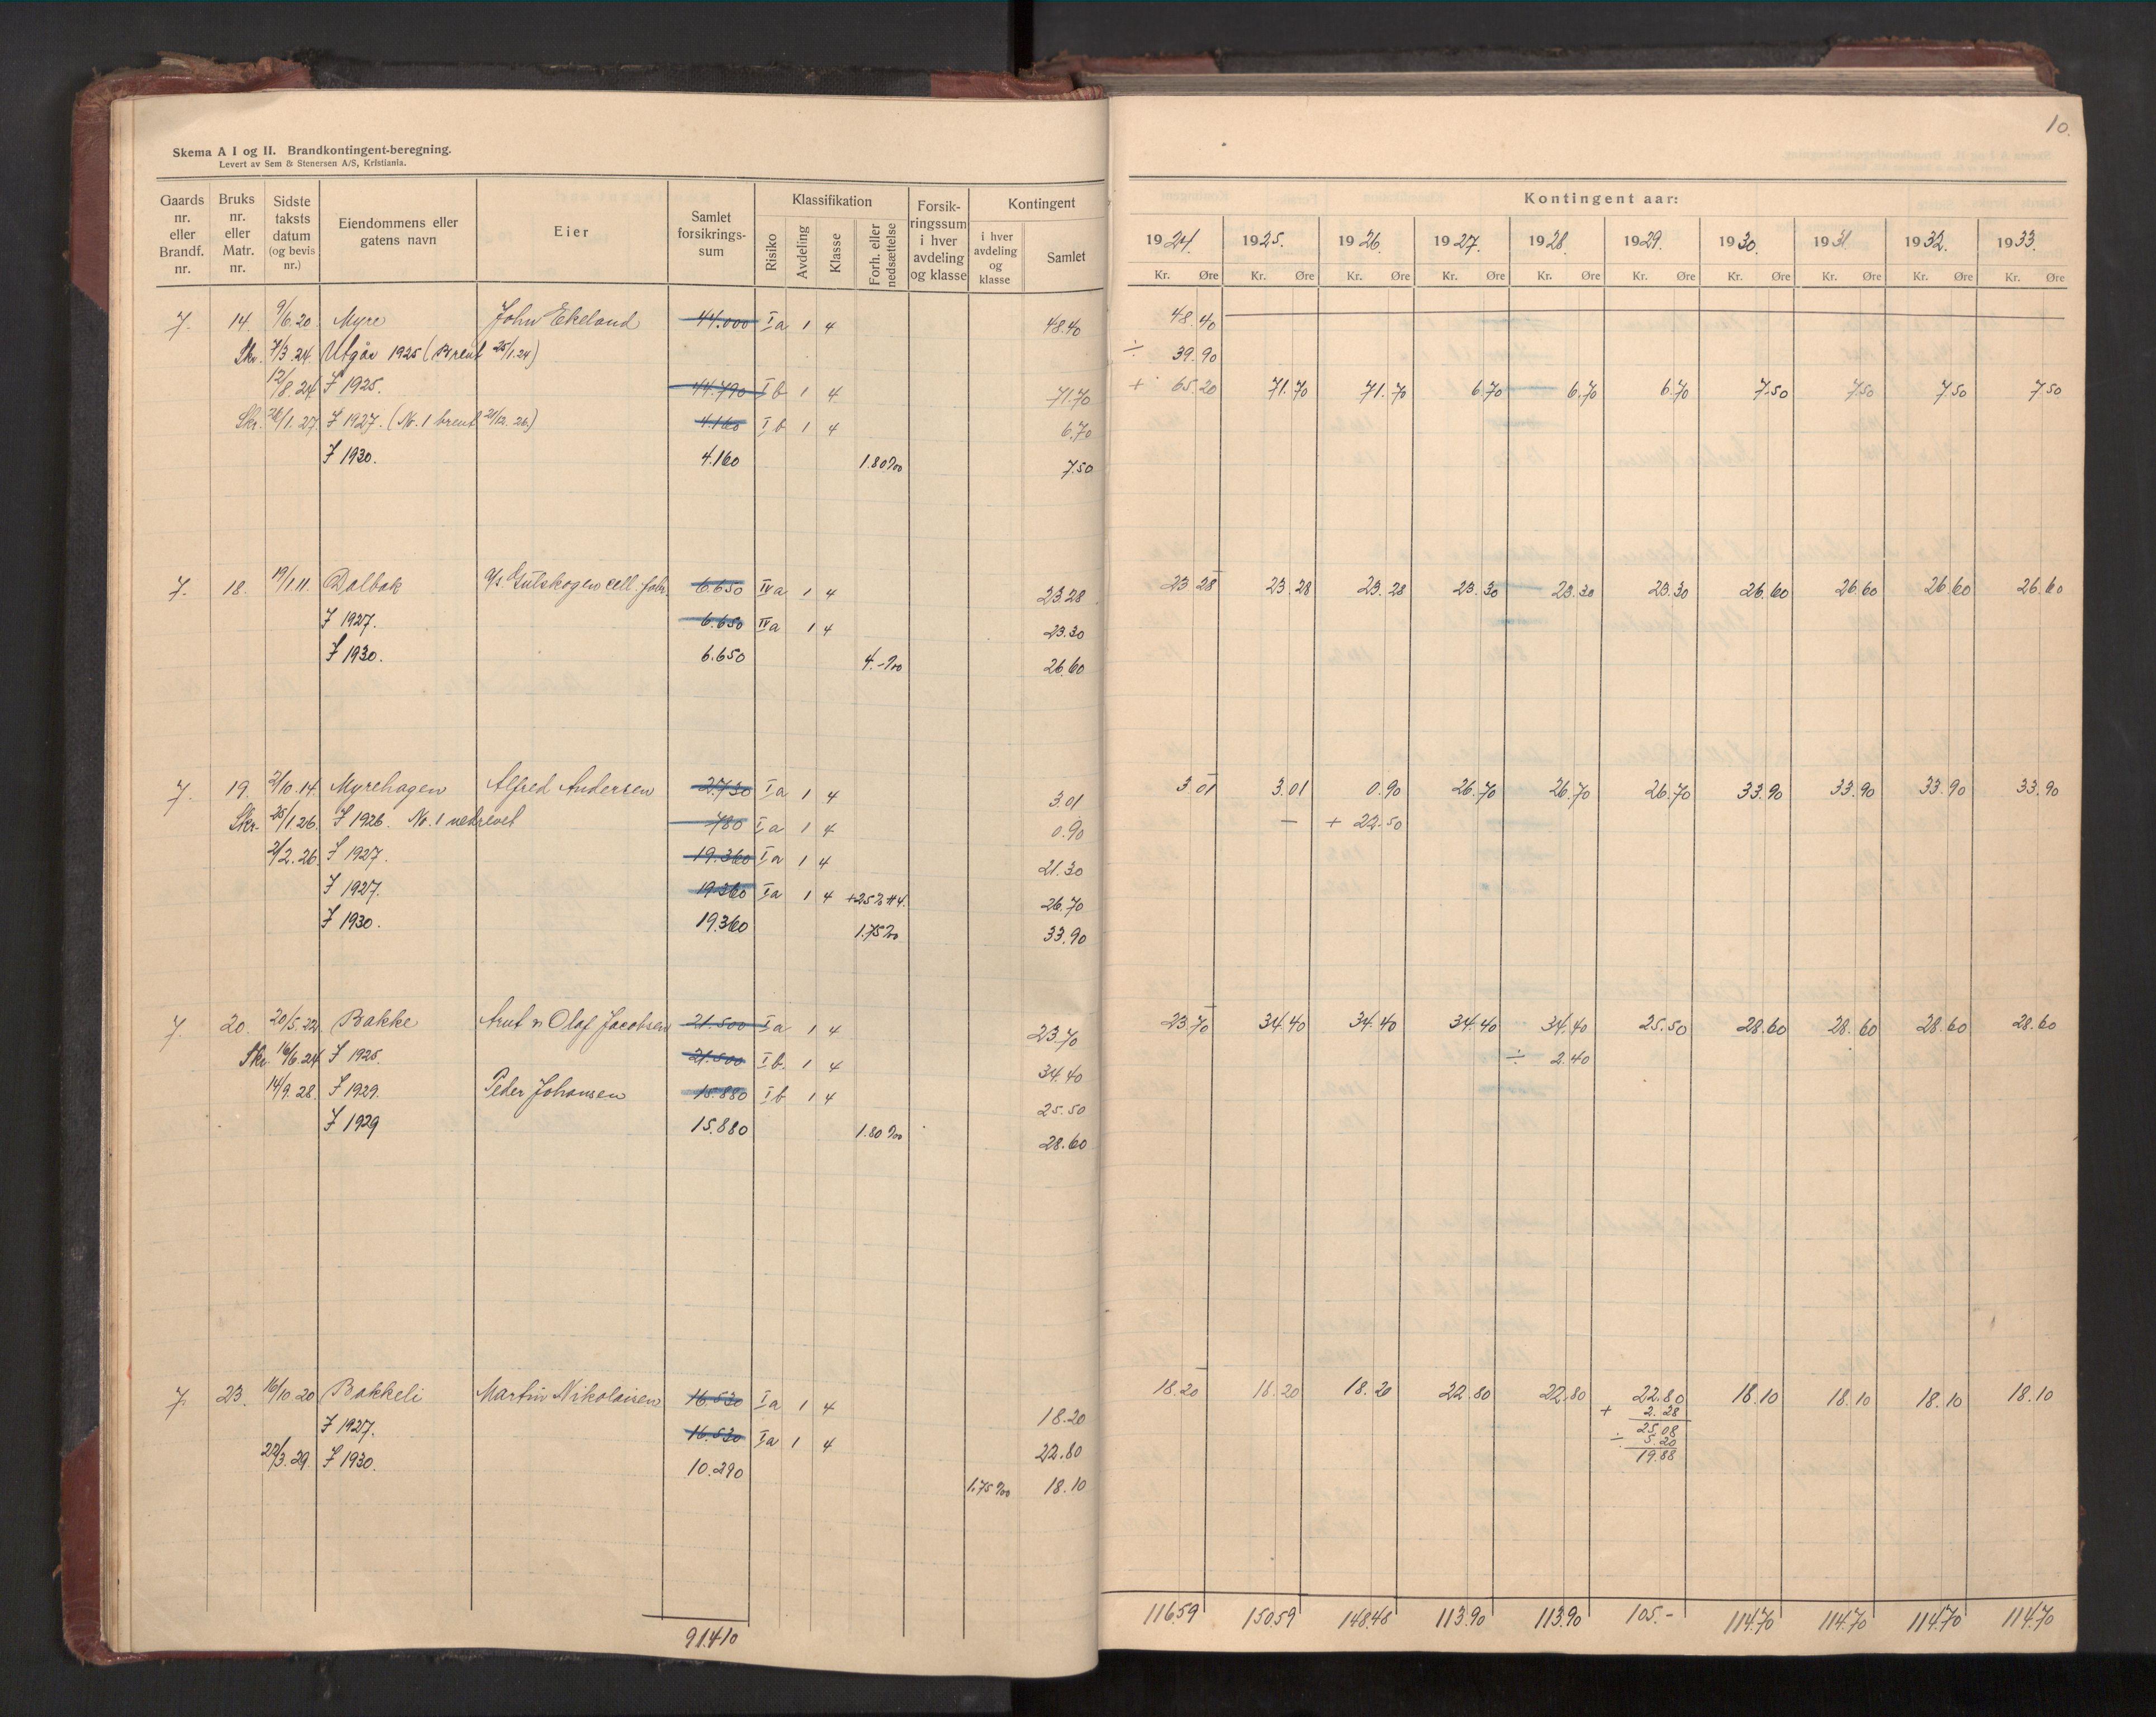 10.
Skema A I og II. Brandkontingent-beregning.
Levert av Sem & Stenersen A/S, Kristiania.
Gaards nr. eller Brandf. nr. | Bruks nr. eller Matr. nr. | Sidste taksts datum (og bevis nr.) | Eiendommens eller gatens navn | Eier | Samlet forsikrings-sum | Klassifikation | Risiko | Avdeling | Klasse | Forh. eller nedsættelse | Forsik-ringssum i hver avdeling og klasse | Kontingent | i hver avdeling og klasse | Samlet
Kontingent aar:
1924. 1925. 1926. 1927. 1928. 1929. 1930. 1931 1932. 1933.
Kr. Øre Kr. Øre Kr. Øre Kr. Øre Kr. Øre Kr. Øre Kr. Øre Kr. Øre Kr. Øre Kr. Øre
7. 14. 9/6.20. Myre John Ekeland 44.000 Ia 1 4 48.40 48.40
Skr. 7/3.24. Utgår 1925 (Brent 25/1.24) ÷ 39.90
12/8.24 F 1925. 44.790 Ib 1 4 71.70 + 65.20 71.70 71.70 6.70 6.70 6.70 7.50 7.50 7.50 7.50
Skr. 26/1.27. F 1927. (No. 1 brent 21/12.26.) 4.160 Ib 1 4 6.70
F 1930. 4.160 1.80‰ 7.50
7. 18. 19/1.11. Dalbak A/s. Gulskogen cell. fabr. 6.650 IVa 1 4 23.28 23.28 23.28 23.28 23.30 23.30 23.30 26.60 26.60 26.60 26.60
F 1927. 6.650 IVa 1 4 23.30
F 1930. 6.650 4.-‰ 26.60
7. 19. 2/10.14. Myrehagen Alfred Andersen 2.730 Ia 1 4 3.01 3.01 3.01 0.90 26.70 26.70 26.70 33.90 33.90 33.90 33.90
Skr. 25/1.26. F 1926. No. 1 nedrevet 780 Ia 1 4 0.90 — + 22.50
2/2.26. F 1927. 19.360 Ia 1 4 21.30
F 1927. 19.360 Ia 1 4 +25% 26.70
F 1930. 19.360 1.75‰ 33.90
7. 20. 20/5.22. Bakke Olaf Jacobsen 21.500 Ia 1 4 23.70 23.70 34.40 34.40 34.40 34.40 25.50 28.60 28.60 28.60 28.60
Skr. 16/6.24. F 1925. 21.500 Ib. 1 4 34.40 ÷ 2.40
14/9.28. F 1929. Peder Johansen 15.880 Ib 1 4 25.50
F 1929 15.880 1.80‰ 28.60
7. 23. 16/10.20 Bakkeli Martin Nikolaisen 16.530 Ia 1 4 18.20 18.20 18.20 18.20 22.80 22.80 22.80 18.10 18.10 18.10 18.10
+ 2.28
F 1927. 16.530 Ia 1 4 22.80 25.08
÷ 5.20
22/3.29. F 1930. 10.290 1.75‰ 18.10 19.88
91.410 116.59 150.59 148.48 113.90 113.90 105.- 114.70 114.70 114.70 114.70